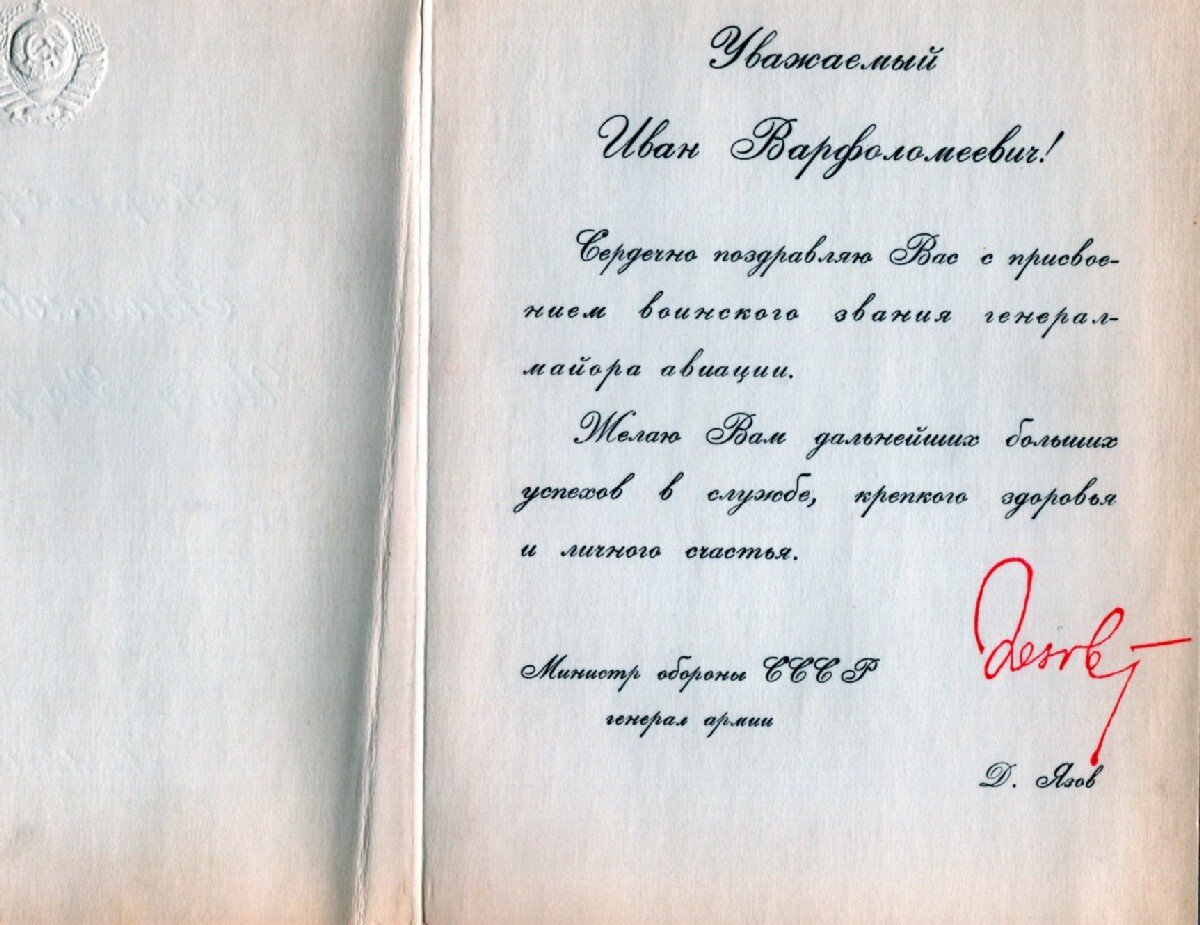 Уважаемый
Иван Варфоломеевич!
Сердечно поздравляю Вас с присвое-
нием воинского звания генерал-
майора авиации.
Желаю Вам дальнейших больших
успехов в службе, крепкого здоровья
и личного счастья.
Министр обороны СССР
генерал армии
Д. Язов